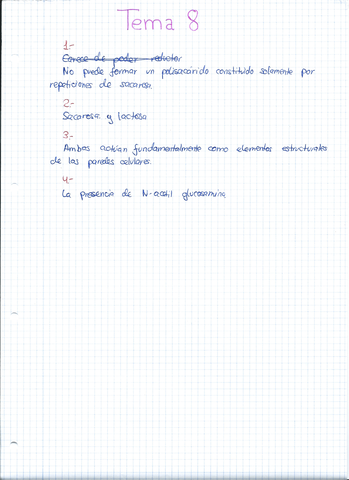 Tema 8
1.-
Carece de poder reductor
No puede formar un polisacárido constituido solamente por
repeticiones de sacarosa.
2.-
Sacarosa y lactosa
3.-
Ambos actúan fundamentalmente como elementos estructurales
de las paredes celulares.
4.-
La presencia de N-acetil glucosamina